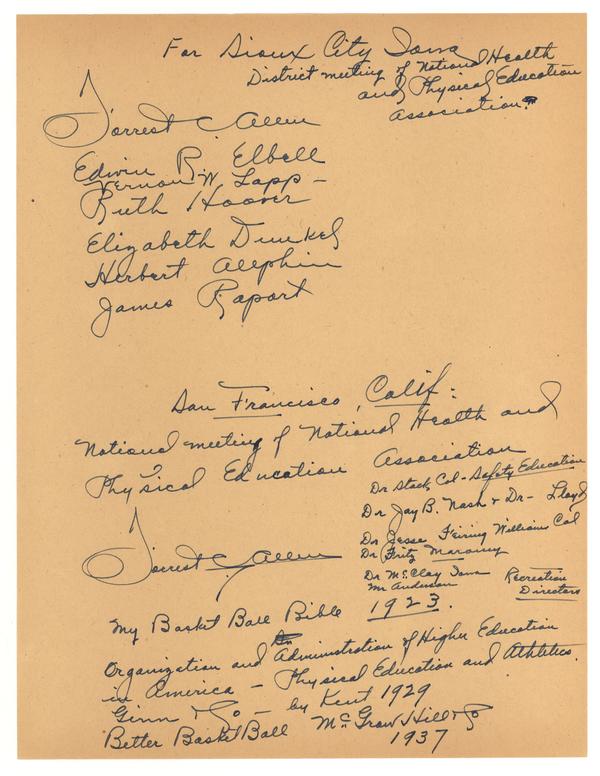 For Sioux City Iowa
District meeting of National Health
and Physical Education
Association.
Forrest C. Allen
Edwin R. Elbell
Vernon W Lapp -
Ruth Hoover
Elizabeth Dunkel
Herbert Allphin
James Raport
San Francisco, Calif:
National meeting of National Health and
Physical Education Association
Dr Stack Col - Safety Education
Dr Jay B. Nash & Dr - Lloyd
Dr Jesse Feiring William Col
Dr Fritz
Dr McClay Iowa
Mr Anderson
Recreation
Directors
Forrest C. Allen
My Basket Ball Bible 1923.
Organization and Administration of Higher Education
in America - Physical Education and Athletics.
Ginn & Co - by Kent 1929
Better BasketBall McGraw Hill & Co
1937